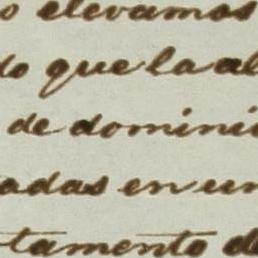 o elevamos
do que la al
de domini
adas en un
tamento de